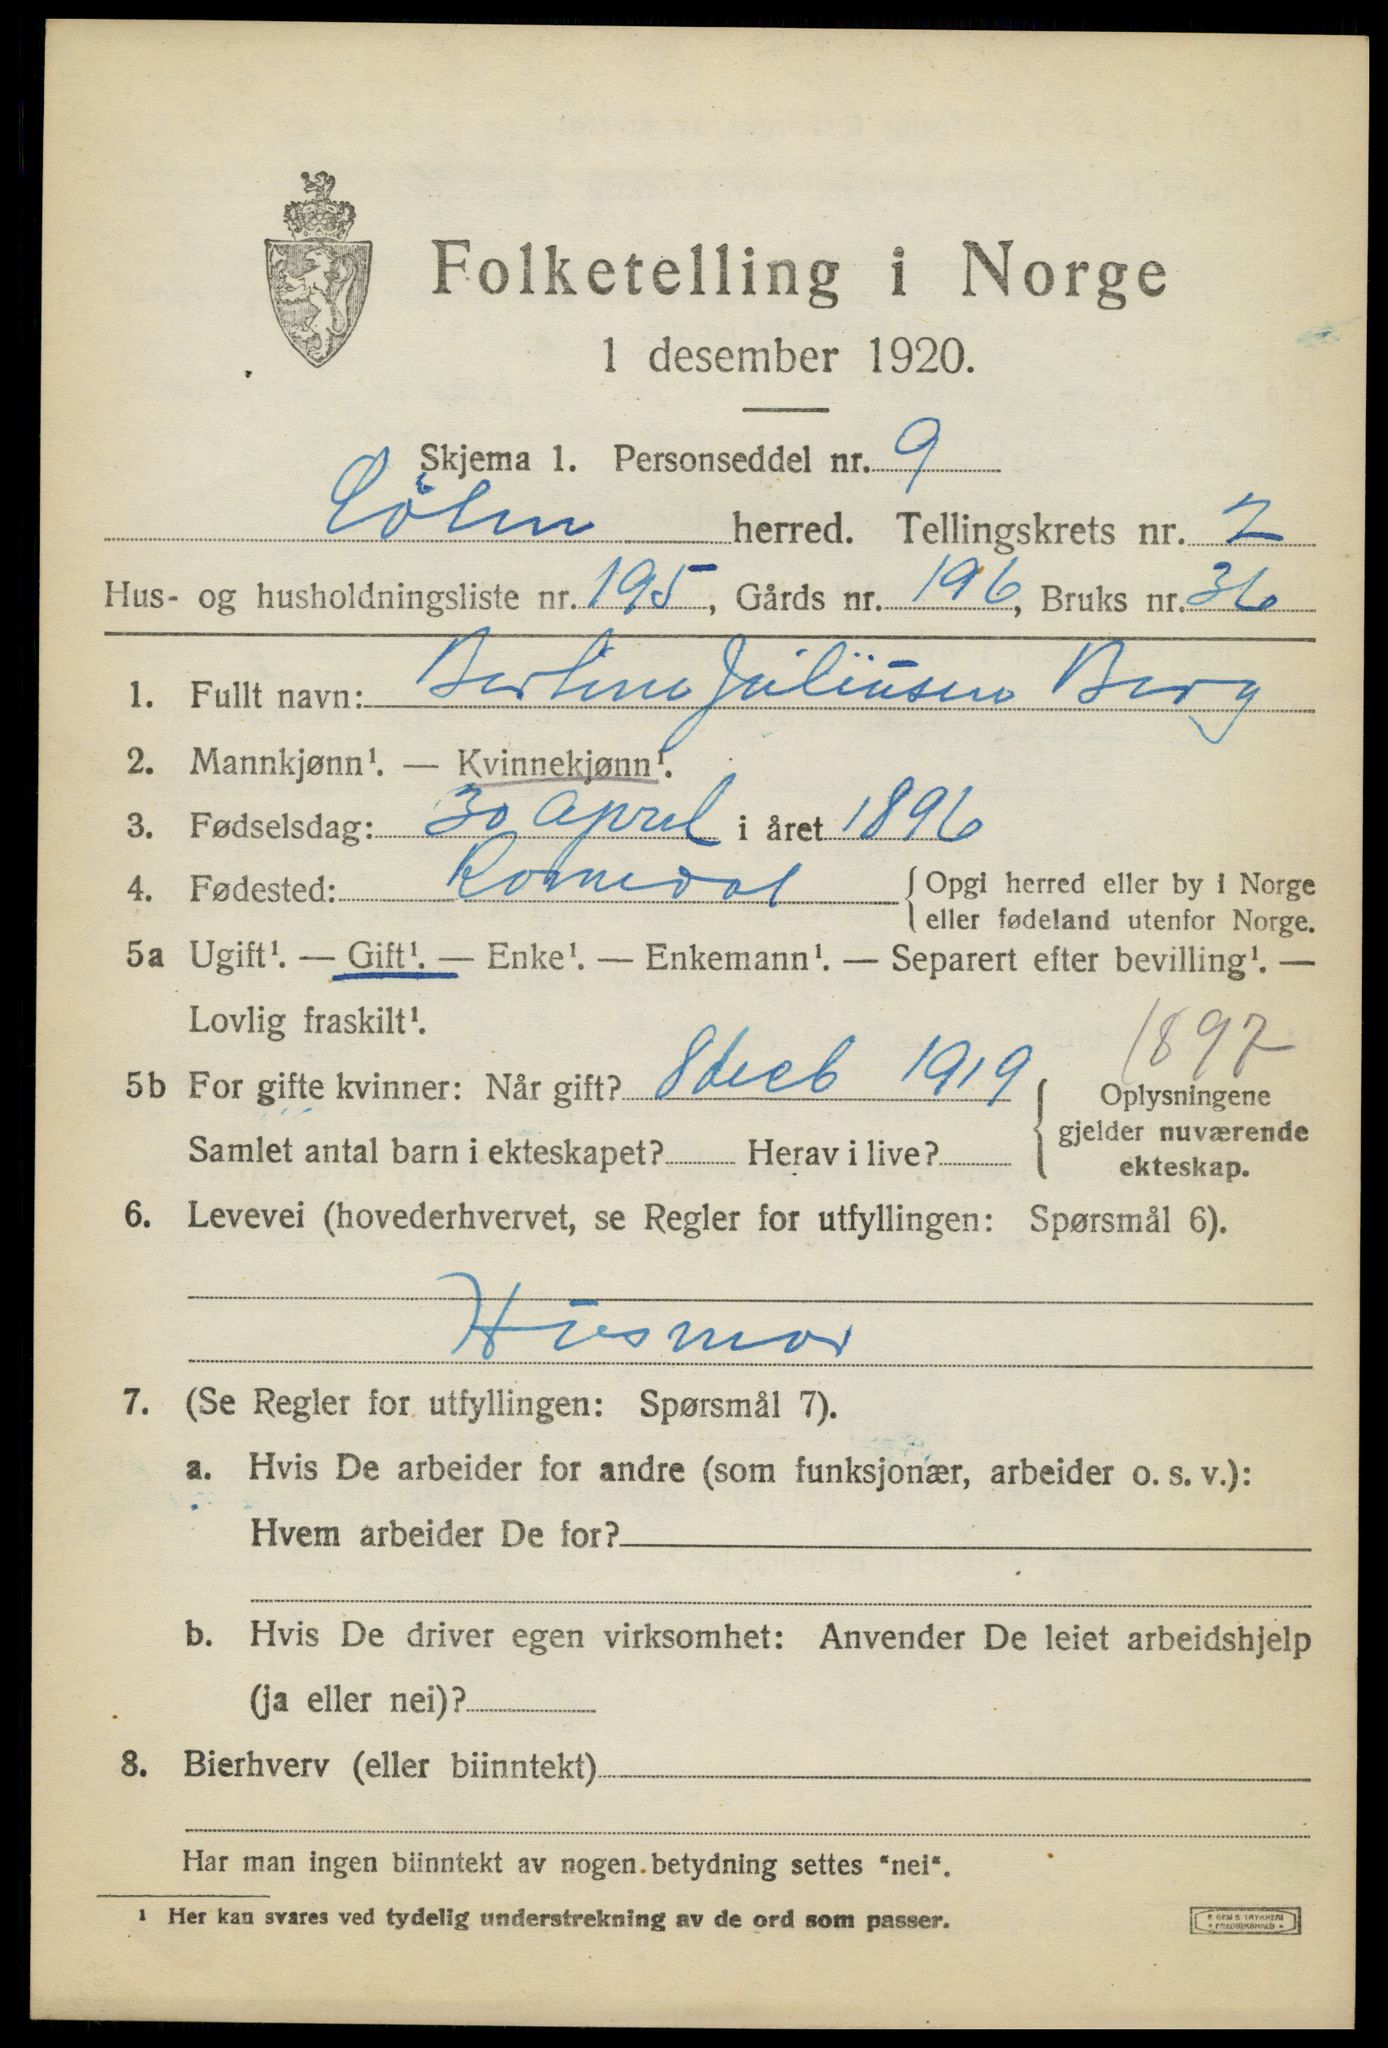 Folketelling i Norge
1 desember 1920.
Skjema 1. Personseddel nr. 9
Löten herred. Tellingskrets nr. 7
Hus- og husholdningsliste nr. 195, Gårds nr. 196, Bruks nr. 36
1. Fullt navn: Berline Juliusen Berg
2. Mannkjønn¹. — Kvinnekjønn¹.
3. Fødselsdag: 30 april i året 1896
4. Fødested: Romedal { Opgi herred eller by i Norge
eller fødeland utenfor Norge.
5a Ugift¹. — Gift¹. — Enke¹. — Enkemann¹. — Separert efter bevilling¹. —
Lovlig fraskilt¹.
1897
5b For gifte kvinner: Når gift? 8 1919 { Oplysningene
gjelder nuværende
Samlet antal barn i ekteskapet? Herav i live? ekteskap.
6. Levevei (hovederhvervet, se Regler for utfyllingen: Spørsmål 6).
Husmor
7. (Se Regler for utfyllingen: Spørsmål 7).
a. Hvis De arbeider for andre (som funksjonær, arbeider o. s. v.):
Hvem arbeider De for?
b. Hvis De driver egen virksomhet: Anvender De leiet arbeidshjelp
(ja eller nei)?
8. Bierhverv (eller biinntekt)
Har man ingen biinntekt av nogen betydning settes "nei".
¹ Her kan svares ved tydelig understrekning av de ord som passer.